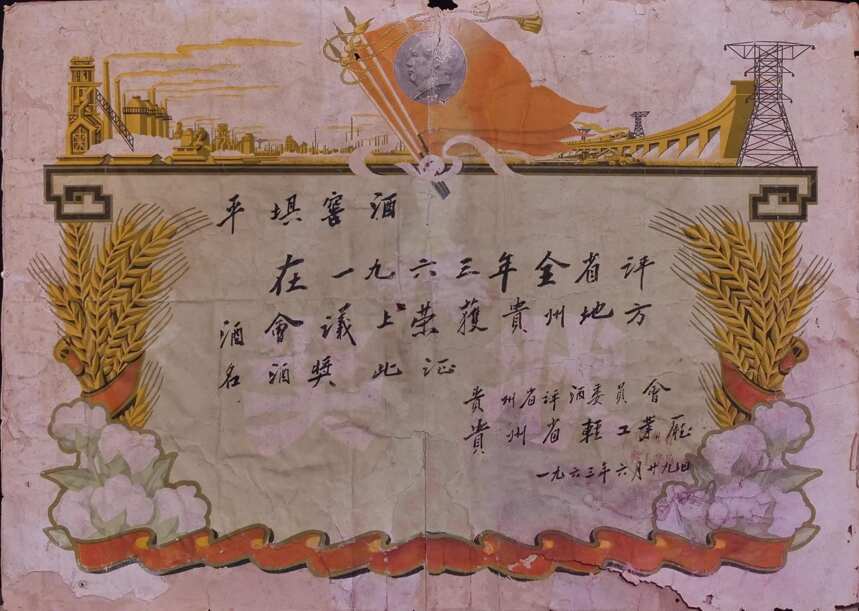 平埧窖酒
在一九六三年全省评
酒會議上荣獲貴州地方
名酒獎此证
贵州省评酒委员會
贵州省輕工業厅
一九六三年六月廿九日